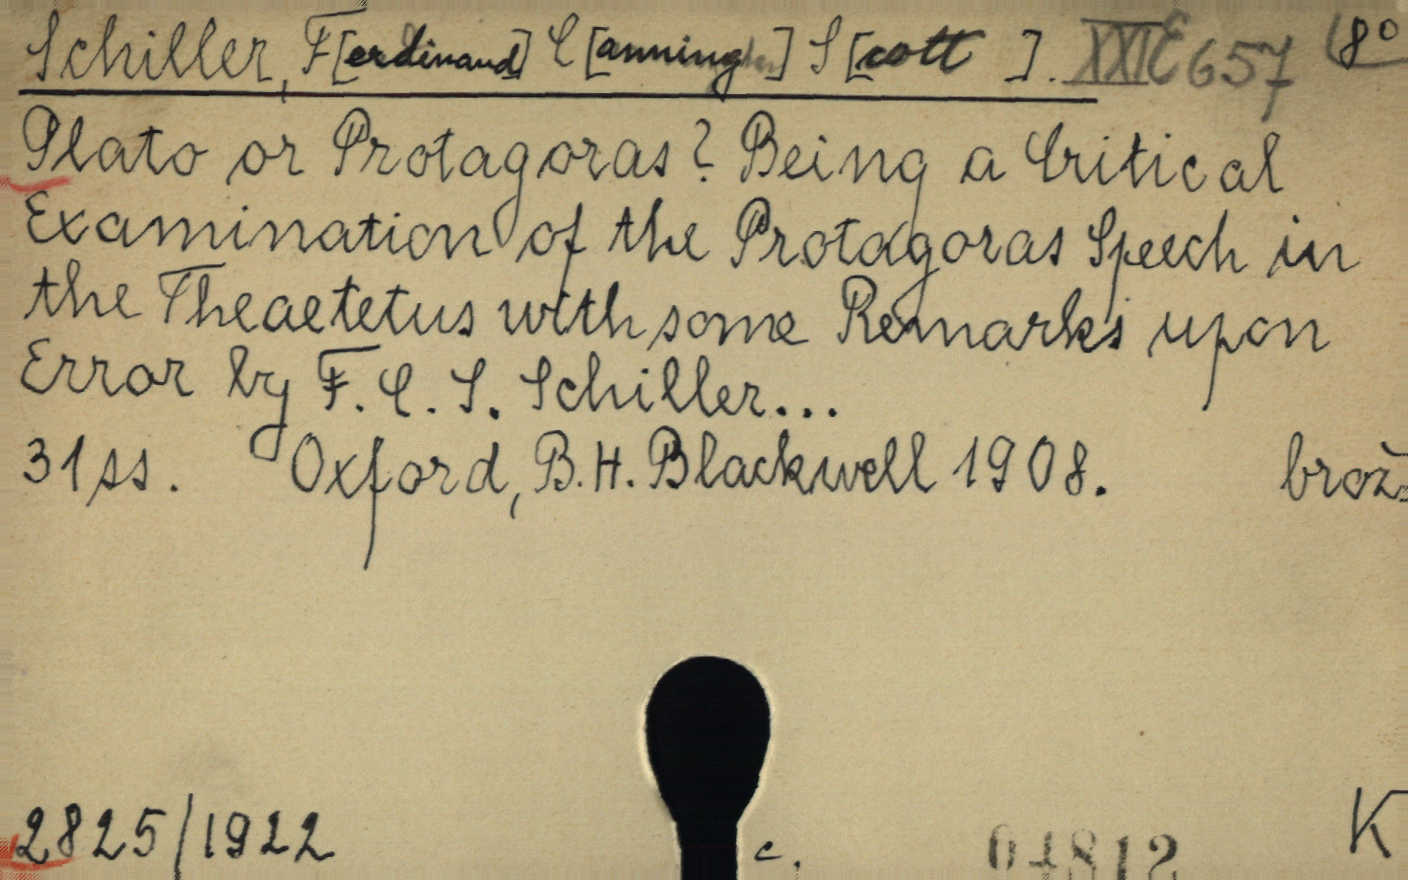 Schiller, F[erdinand] C[anning] S[cott]. XXI E 657 8°
Plato or Protagoras? Being a Critical
Examination of the Protagoras Speech in
the Theaetetus with some Remarks upon
Error by F. C. S. Schiller...
31 ss. Oxford, B. H. Blackwell 1908. brož.
2825/1922 c. 04812 K